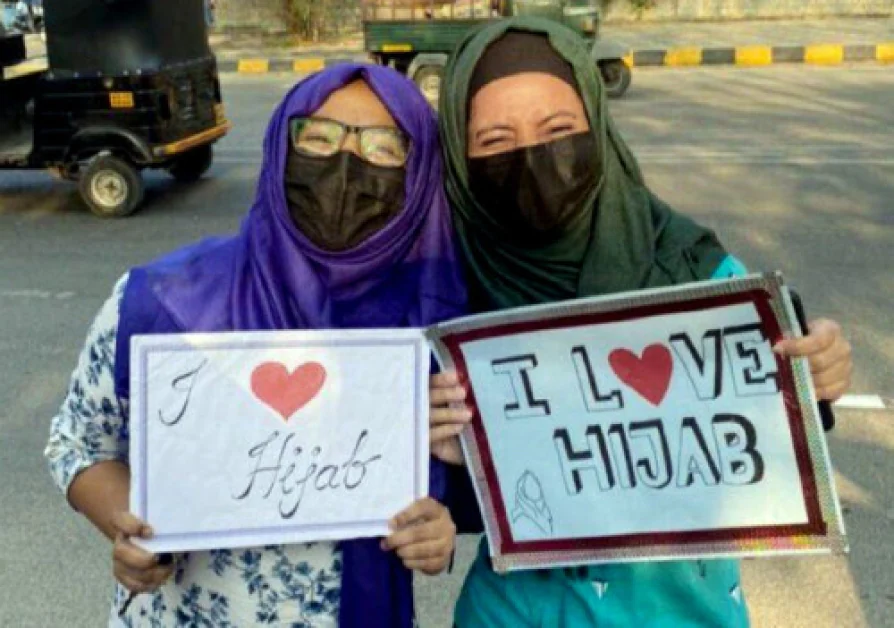 I ♥
Hijab
I L♥VE
HIJAB